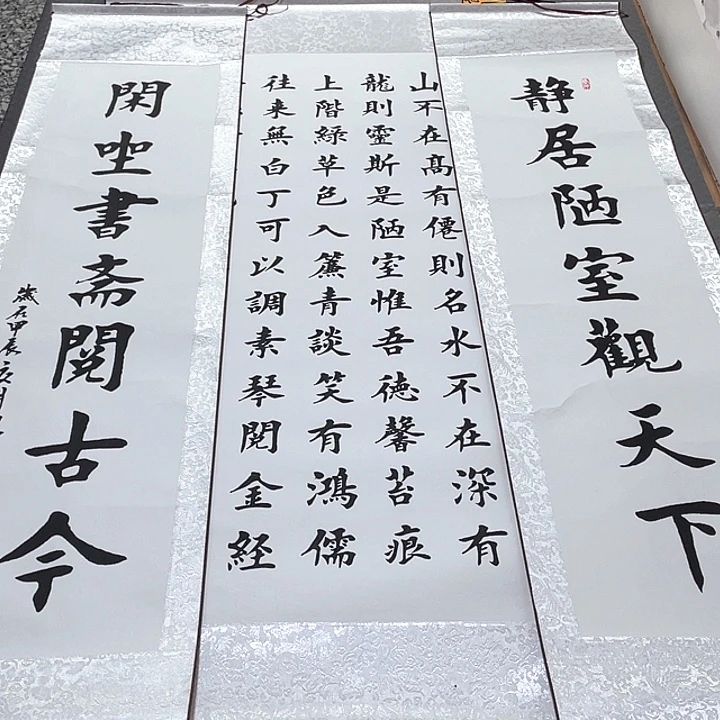 静居陋室觀天下
山不在髙有僊則名水不在深有
龍則靈斯是陋室惟吾德馨苔痕
上階綠草色入簾青談笑有鴻儒
往来無白丁可以調素琴閲金経
閑坐書斋閲古今
歲在甲辰